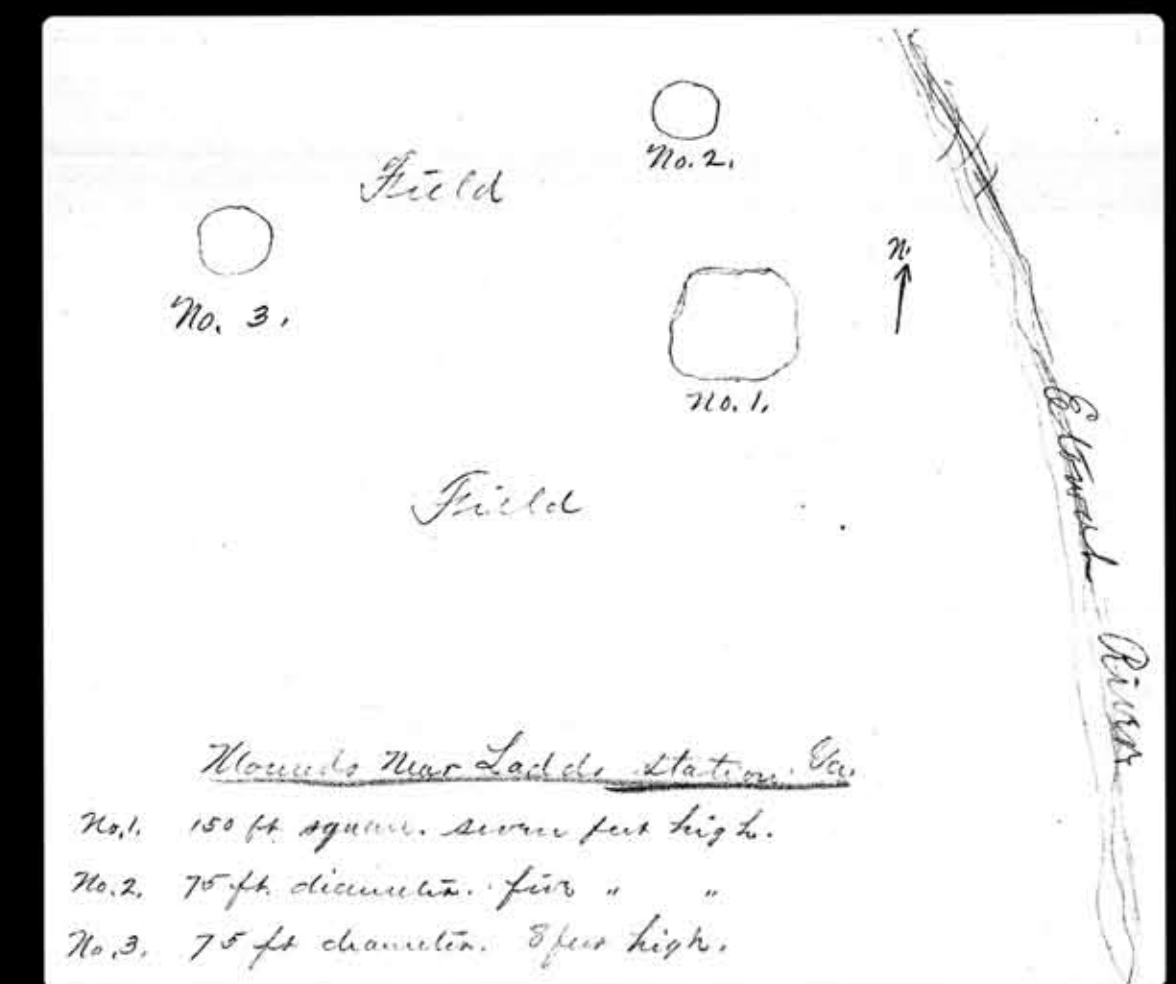 No. 2.
Field
No. 3.
N.
No. 1.
Field
Etowah River
Mounds Near Ladds Station. Ga.
No.1. 150 ft square. seven feet high.
No.2. 75 ft. diameter. five " "
No.3. 75 ft diameter. 8 feet high.